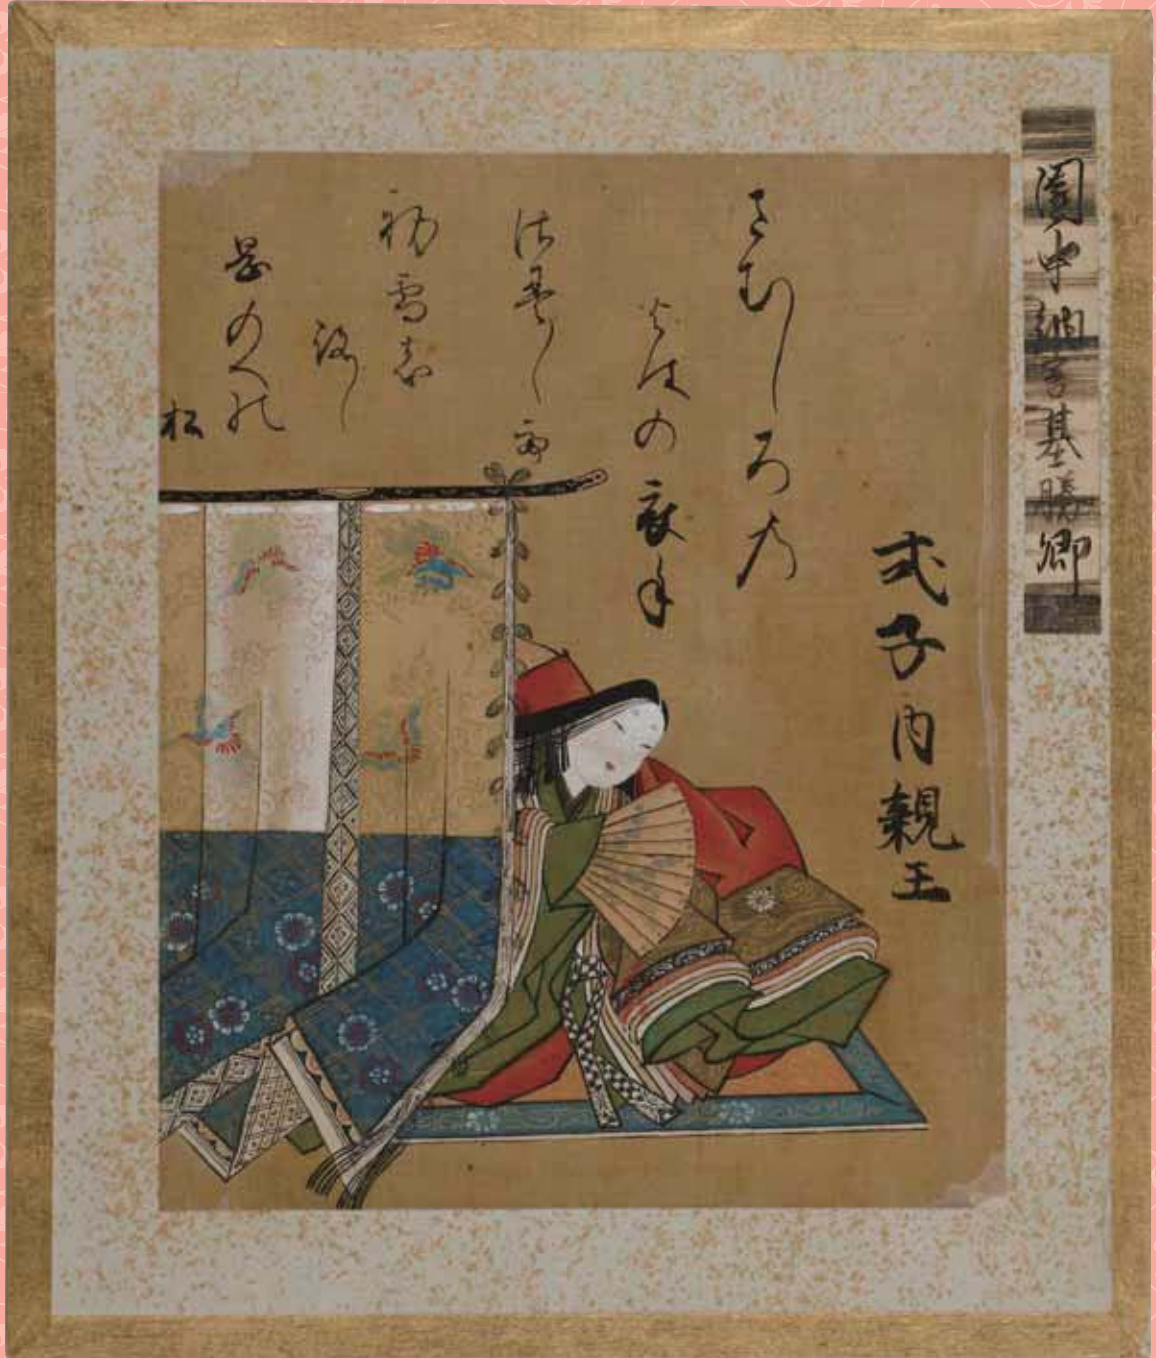 園中納言基勝卿
式子内親王
さむしろの
よはの衣手
さえ〳〵て
初雪し
ろし
岡のへの
松